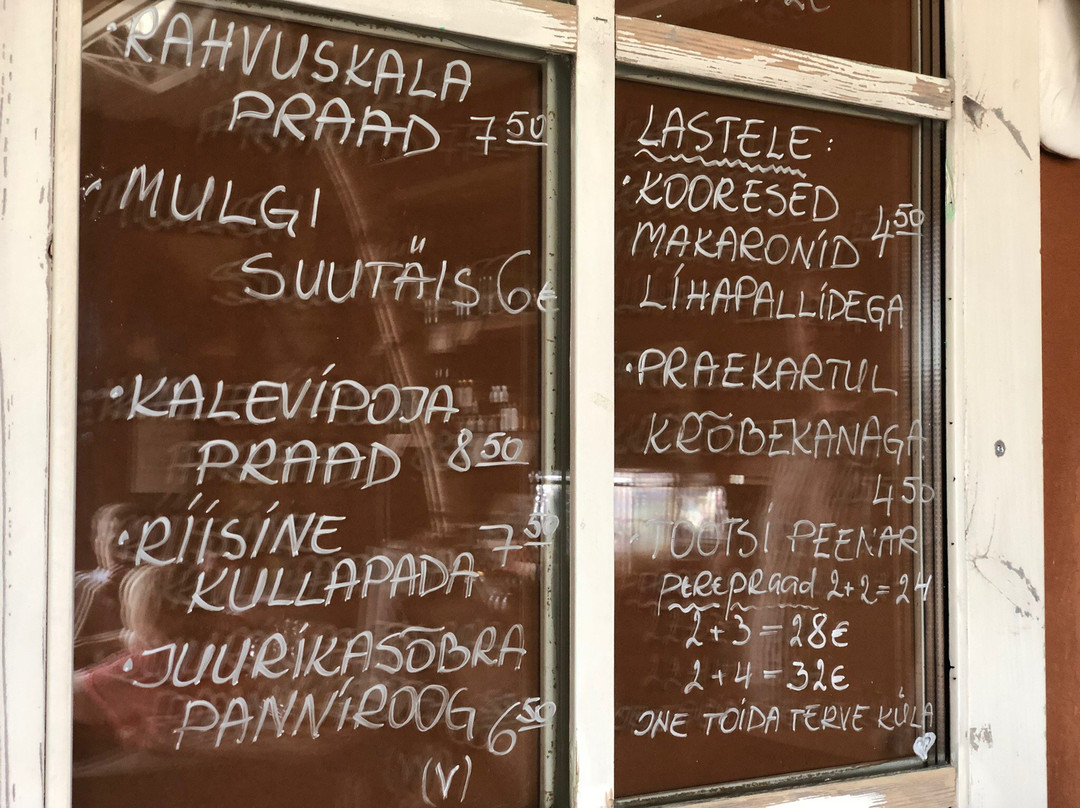 ·RAHVUSKALA
PRAAD 7 50
·MULGI
SUUTÄIS 6€
·KALEVIPOJA
PRAAD 8 50
·RIISINE 7 50
KULLAPADA
·JUURIKASÕBRA
PANNIROOG 6 50
(V)
LASTELE:
·KOORESED
MAKARONID 4 50
LIHAPALLIDEGA
·PRAEKARTUL
KRÕBEKANAGA
4 50
·TOOTSI PEENAR
PEREPRAAD 2+2=24
2+3=28€
2+4=32€
JNE TOIDA TERVE KÜLA